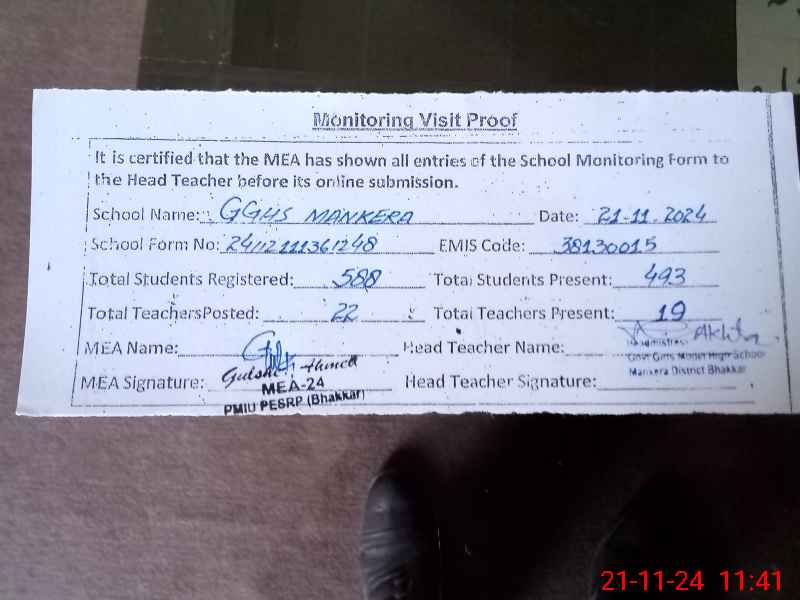 Monitoring Visit Proof
It is certified that the MEA has shown all entries of the School Monitoring Form to
the Head Teacher before its online submission.
School Name: GGHS MANKERA Date: 21-11.2024
School Form No: 24112111361248 EMIS Code: 38130015
Total Students Registered: 588 Total Students Present: 493
Total TeachersPosted: 22 Total Teachers Present: 19
MEA Name: Head Teacher Name: Akhtar
Govt Girls Model High School
Mankera District Bhakkar
MEA Signature: Ahmed Head Teacher Signature:
MEA-24
PMIU PESRP (Bhakkar)
21-11-24 11:41